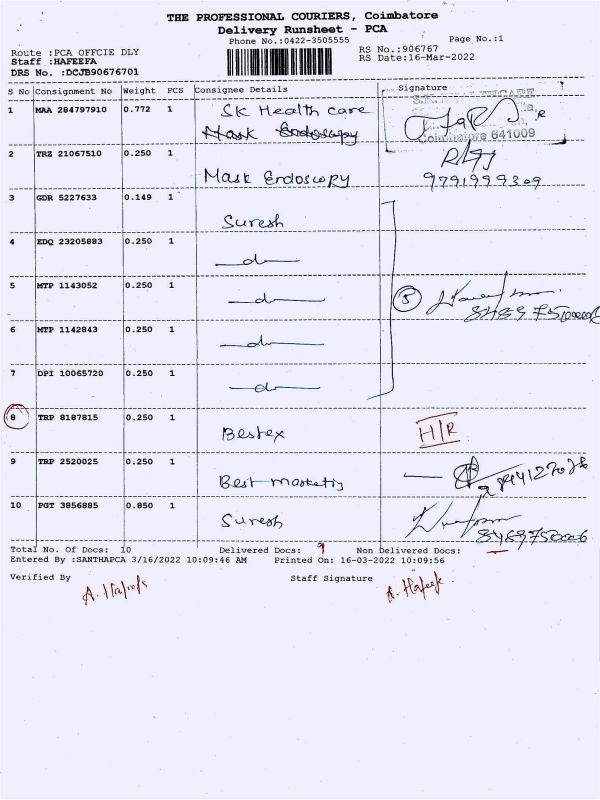 THE PROFESSIONAL COURIERS, Coimbatore
Delivery Runsheet - PCA
Phone No.:0422-3505555 Page No.:1
Route :PCA OFFCIE DLY RS No.:906767
Staff :HAFEEFA RS Date:16-Mar-2022
DRS No. :DCJB90676701
S No Consignment No Weight PCS Consignee Details Signature
1 MAA 284797910 0.772 1 SK Health care
Mask Endoscopy
Coimbatore 641009
2 TRZ 21067510 0.250 1 Mask Endoscopy
9791999309
3 GDR 5227633 0.149 1 Suresh
4 EDQ 23205883 0.250 1 do
5 MTP 1143052 0.250 1 do 5
6 MTP 1142843 0.250 1 do
7 DPI 10065720 0.250 1 do
8 TRP 8187815 0.250 1 Bestex H/R
9 TRP 2520025 0.250 1 Best marketing
10 PGT 3856885 0.850 1 Suresh 8489750006
Total No. Of Docs: 10 Delivered Docs: 9 Non Delivered Docs:
Entered By :SANTHAPCA 3/16/2022 10:09:46 AM Printed On: 16-03-2022 10:09:56
Verified By Staff Signature
A. Hafeefa A. Hafeefa